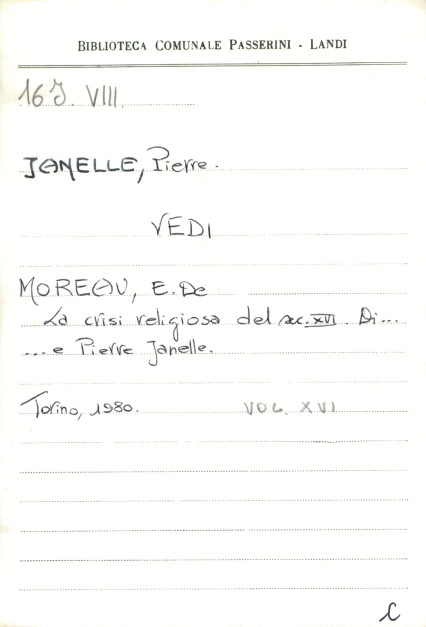 BIBLIOTECA COMUNALE PASSERINI - LANDI
16 J. VIII.
JANELLE, Pierre.
VEDI
MOREAU, E. De
La crisi religiosa del sec. XVI. Di...
... e Pierre Janelle.
Torino, 1980. VOL. XVI
C